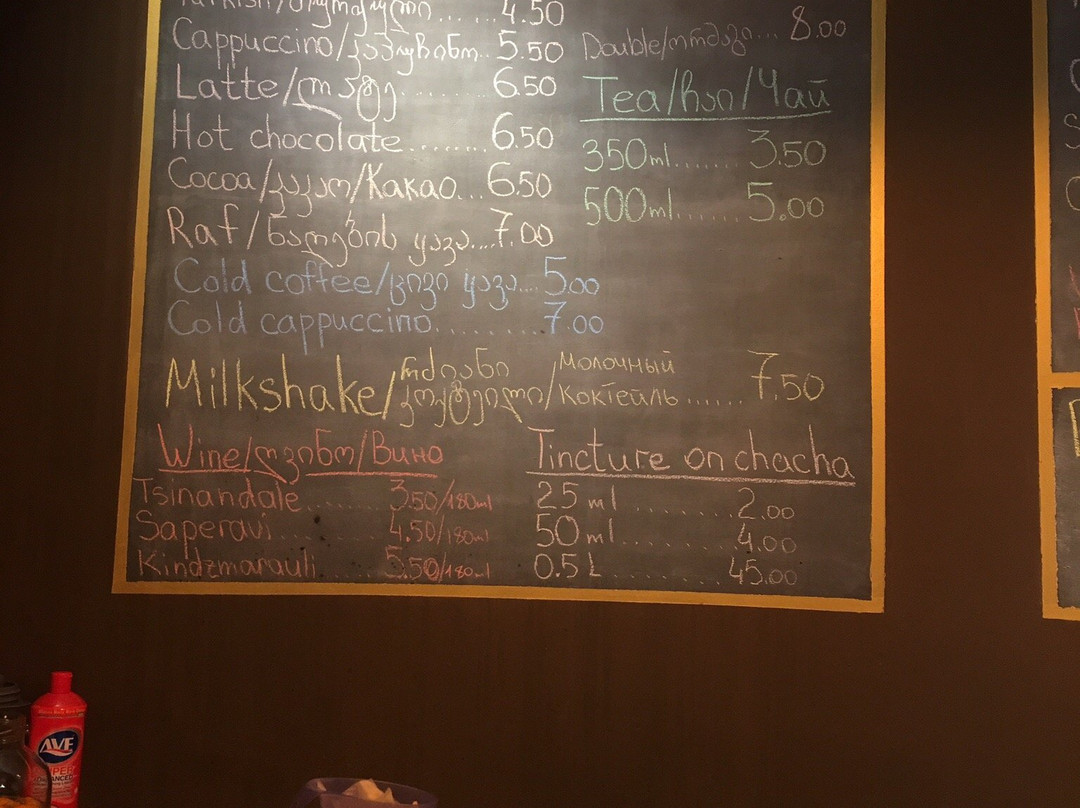 Turkish/თურქული... ...4.50
Cappuccino/კაპუჩინო..5.50
Latte/ლატე.........6.50
Hot chocolate.......6.50
Cocoa/კაკაო/Какао...6.50
Raf/ნაღების ყავა....7.00
Cold coffee/ცივი ყავა...5.00
Cold cappuccino.........7.00
Double/ორმაგი... 8.00
Tea/ჩაი/Чай
350ml....... 3.50
500ml...... 5.00
Milkshake/რძიანი კოქტეილი/молочный коктейль......7.50
Wine/ღვინო/Вино
Tsinandale........3.50/180ml
Saperavi.........4.50/180ml
Kindzmarauli.....5.50/180ml
Tincture on chacha
25 ml ........ 2.00
50 ml......... 4.00
0.5 L......... 45.00
AVE